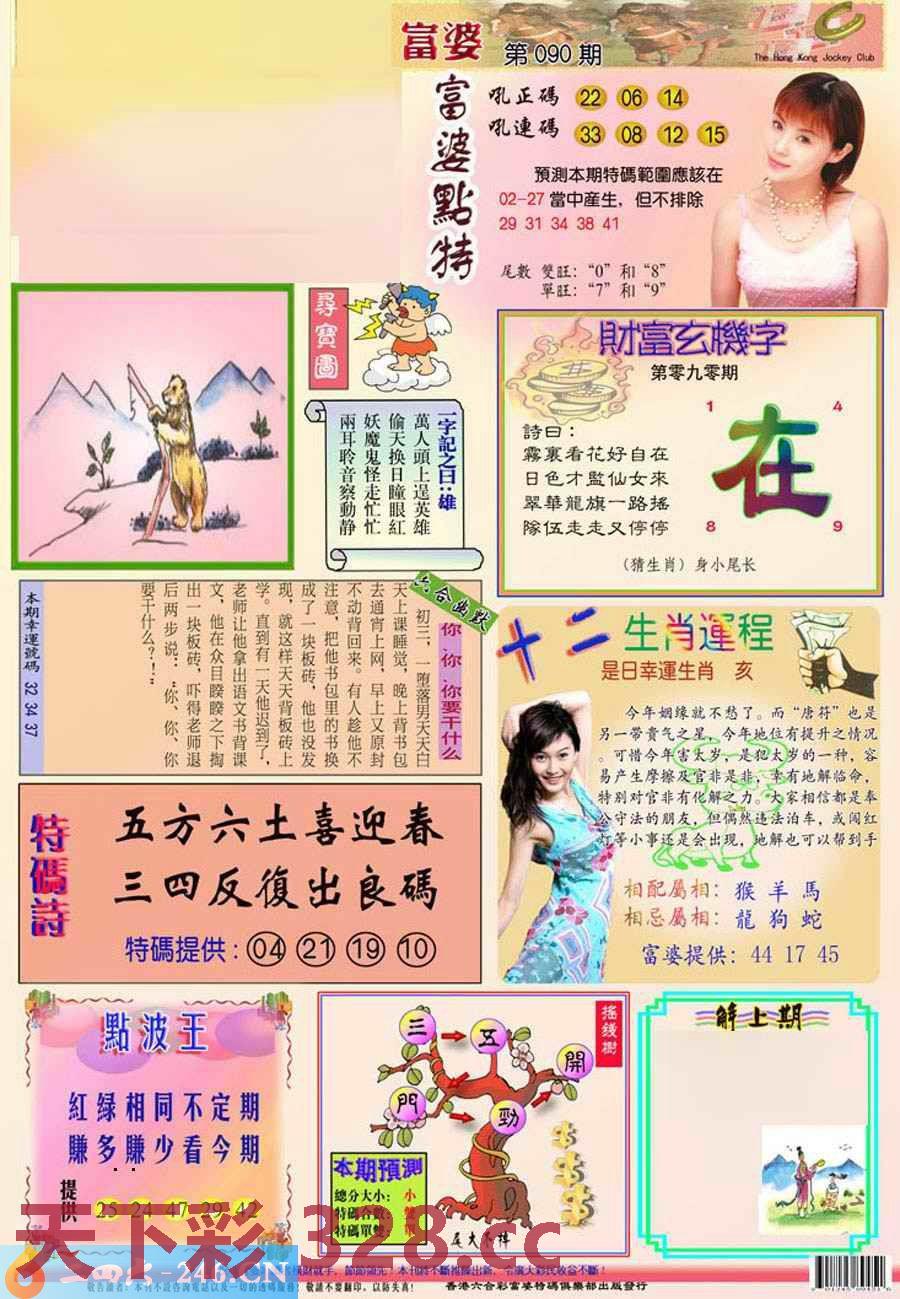 富婆
第 090 期
The Hong Kong Jockey Club
富婆點特
吼正碼 22 06 14
吼連碼 33 08 12 15
預測本期特碼範圍應該在
02-27 當中産生，但不排除
29 31 34 38 41
尾數 雙旺：“0”和“8”
單旺：“7”和“9”
尋寶圖
一字記之曰：雄
萬人頭上逞英雄
偷天换日瞳眼紅
妖魔鬼怪走忙忙
兩耳聆音察動静
財富玄機字
第零九零期
詩曰：
霧裏看花好自在
日色才監仙女來
翠華龍旗一路摇
隊伍走走又停停
1 4
在
8 9
（猜生肖）身小尾长
六合幽默
你、你、你要干什么
初三，一堕落男天天白
天上课睡觉，晚上背书包
去通宵上网，早上又原封
不动背回来。有人趁他不
注意，把他书包里的书换
成了一块板砖，他也没发
现，就这样天天背板砖上
学。直到有一天他迟到了，
老师让他拿出语文书背课
文，他在众目睽睽之下掏
出一块板砖，吓得老师退
后两步说：“你、你、你
要干什么？！”
本期幸運號碼 32 34 37
十二生肖運程
是日幸運生肖 亥
今年姻缘就不愁了。而“唐符”也是
另一带贵气之星，今年地位有提升之情况
。可惜今年害太岁，是犯太岁的一种，容
易产生摩擦及官非是非，幸有地解临命，
特别对官非有化解之力。大家相信都是奉
公守法的朋友，但偶然违法泊车，或闯红
灯等小事还是会出现，地解也可以帮到手
相配屬相：猴 羊 馬
相忌屬相：龍 狗 蛇
富婆提供：44 17 45
特碼詩
五方六土喜迎春
三四反復出良碼
特碼提供：04 21 19 10
點波王
紅緑相同不定期
賺多賺少看今期
提供 25 24 47 29 42
摇錢樹
三 五 開
門 勁
本期預測
總分大小：小
特碼合數：雙
特碼單雙：單
尾大不掉
解上期
天下彩 328.cc
246.CN
香港六合彩富婆特碼俱樂部出版發行